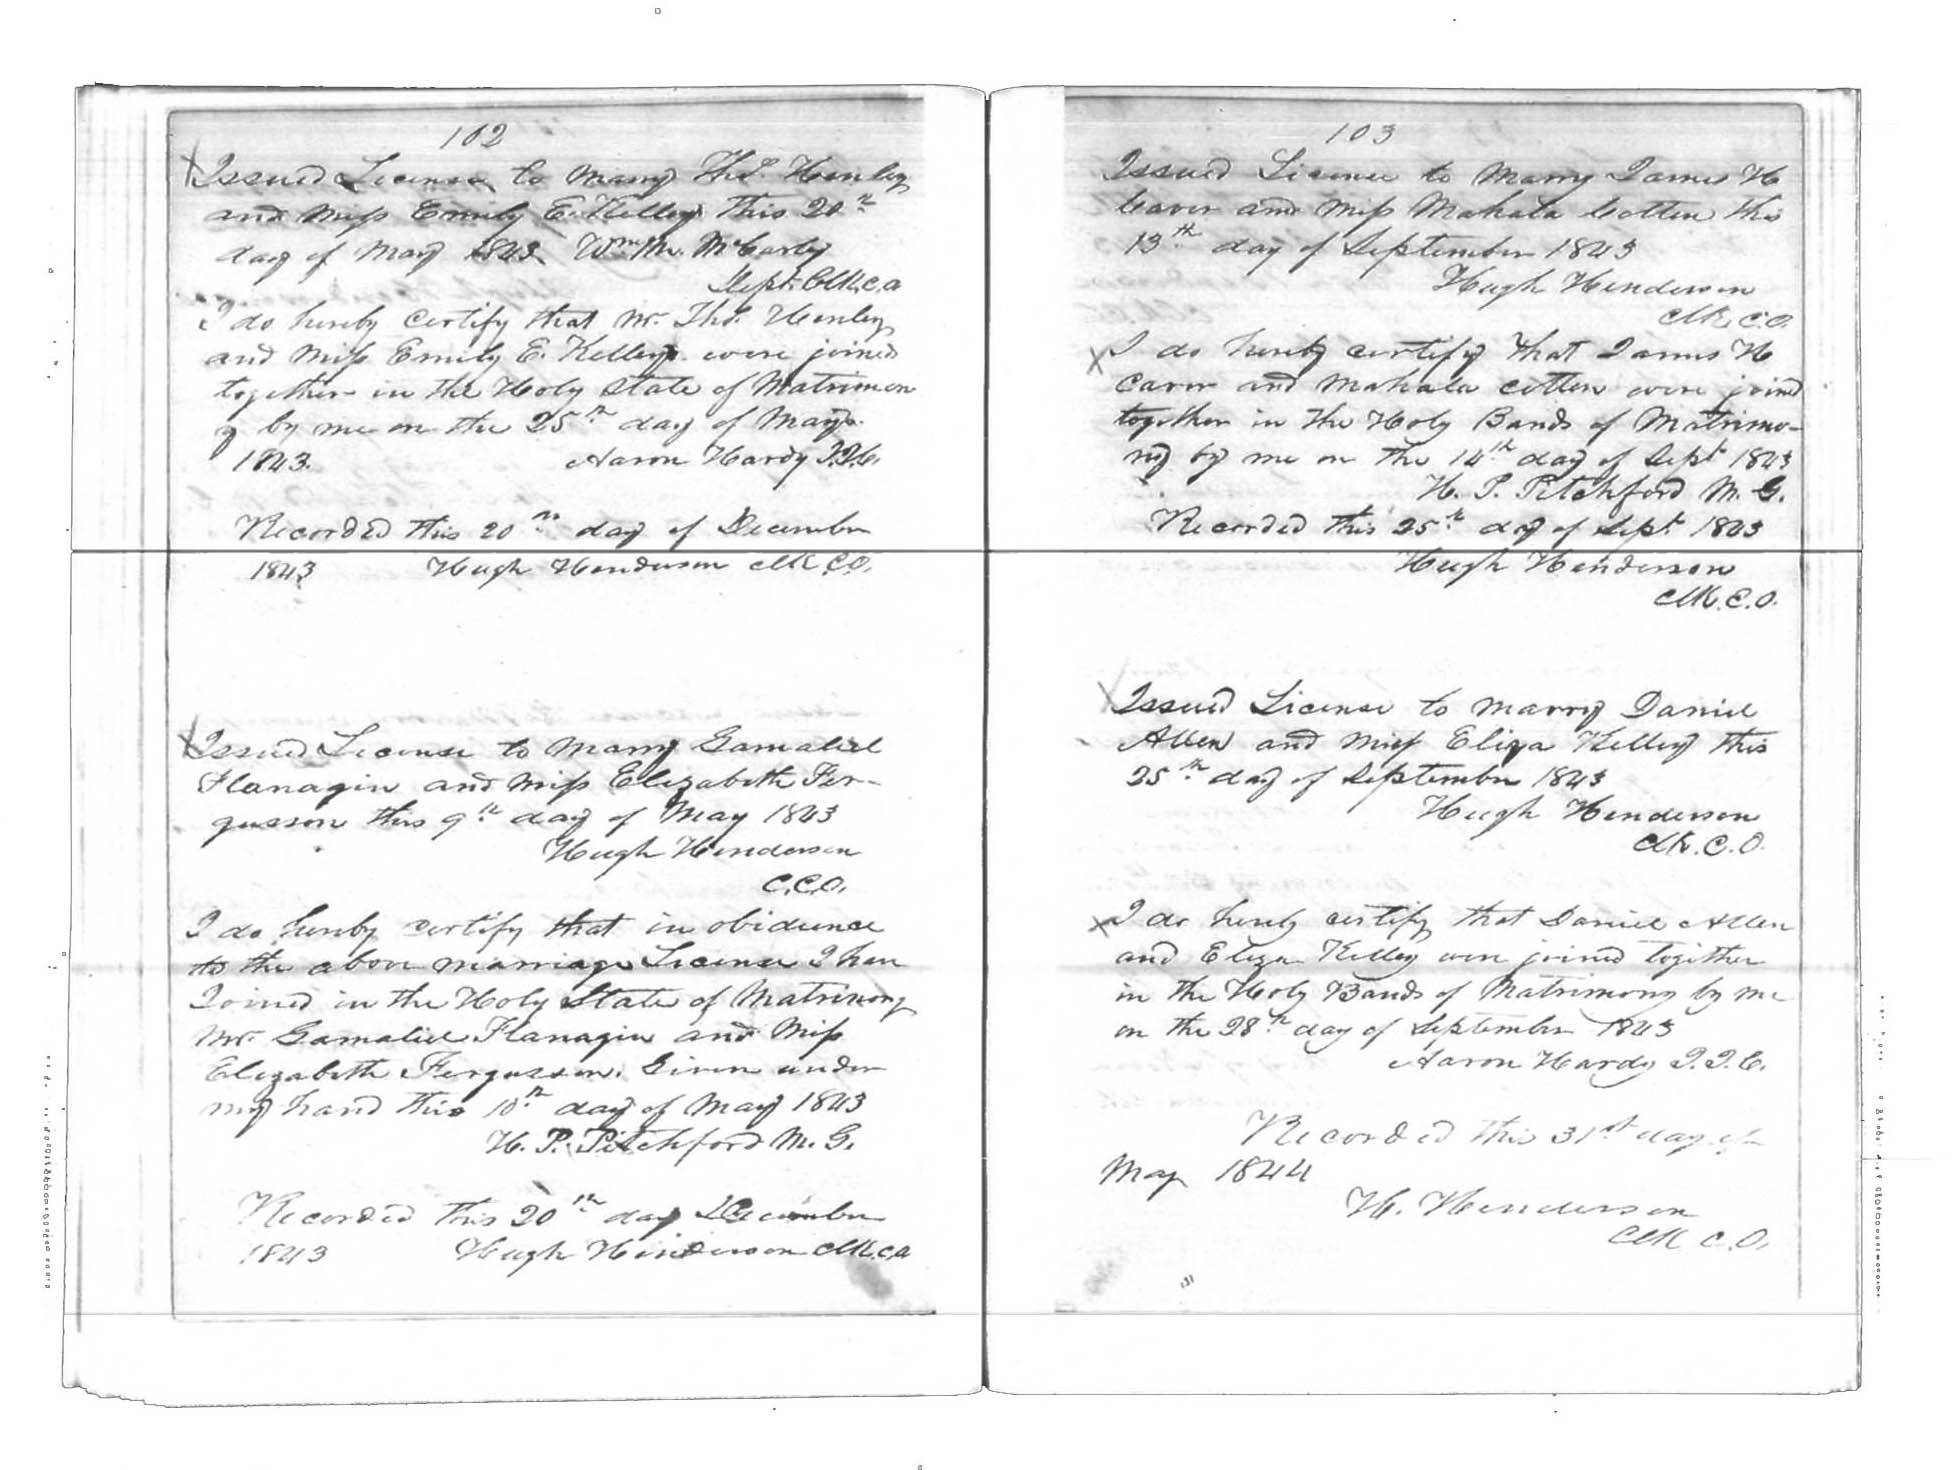 102
Issued License to Marry Thos. Henley
and Miss Emily E. Kelley this 20th
day of May 1843 Wm M. McCarty
Dept. Clk. C.O.
I do hereby certify that Mr. Thos. Henley
and Miss Emily E. Kelley were joined
together in the Holy State of Matrimon
y by me on the 25th day of May
1843. Aaron Hardy J.J.C.
Recorded this 20th day of December
1843 Hugh Henderson Clk C.O.
Issued License to Marry Gamaliel
Flanagin and Miss Elizabeth Fer-
gusson this 9th day of May 1843
Hugh Henderson
C.C.O.
I do hereby certify that in obidience
to the above marriage License I have
Joined in the Holy State of Matrimony
Mr. Gamaliel Flanagin and Miss
Elizabeth Fergusson. Given under
my hand this 10th day of May 1843
H. P. Pitchford M. G.
Recorded this 20th day December
1843 Hugh Henderson Clk. C.O.
103
Issued License to Marry James H
Carer and Miss Mahala Cotten this
13th day of September 1843
Hugh Henderson
Clk. C.O.
I do hereby certify that James H
Carer and Mahala Cotten were joined
together in the Holy Bands of Matrimo-
ny by me on the 14th day of Sept 1843
H. P. Pitchford M. G.
Recorded this 25th day of Sept 1843
Hugh Henderson
Clk. C.O.
Issued License to Marry Daniel
Allen and Miss Eliza Kelley this
25th day of September 1843
Hugh Henderson
Clk. C.O.
I do hereby certify that Daniel Allen
and Eliza Kelley were joined together
in the Holy Bands of Matrimony by me
on the 28th day of September 1843
Aaron Hardy J.J.C.
Recorded this 31st day of
May 1844
H. Henderson
Clk C.O.